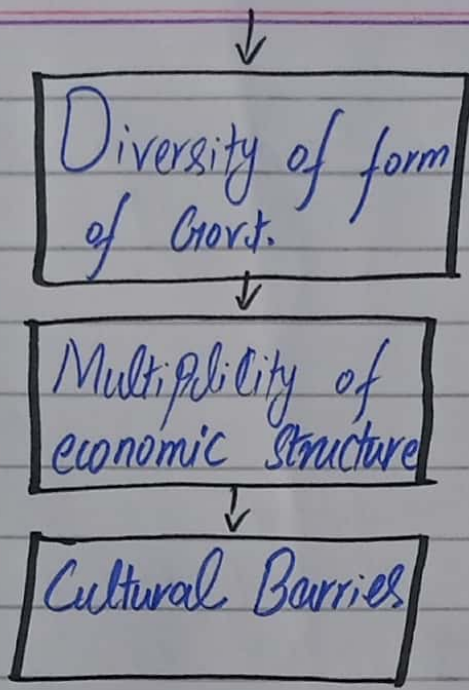 Diversity of form
of Govt.
Multiplicity of
economic structure
Cultural Barries